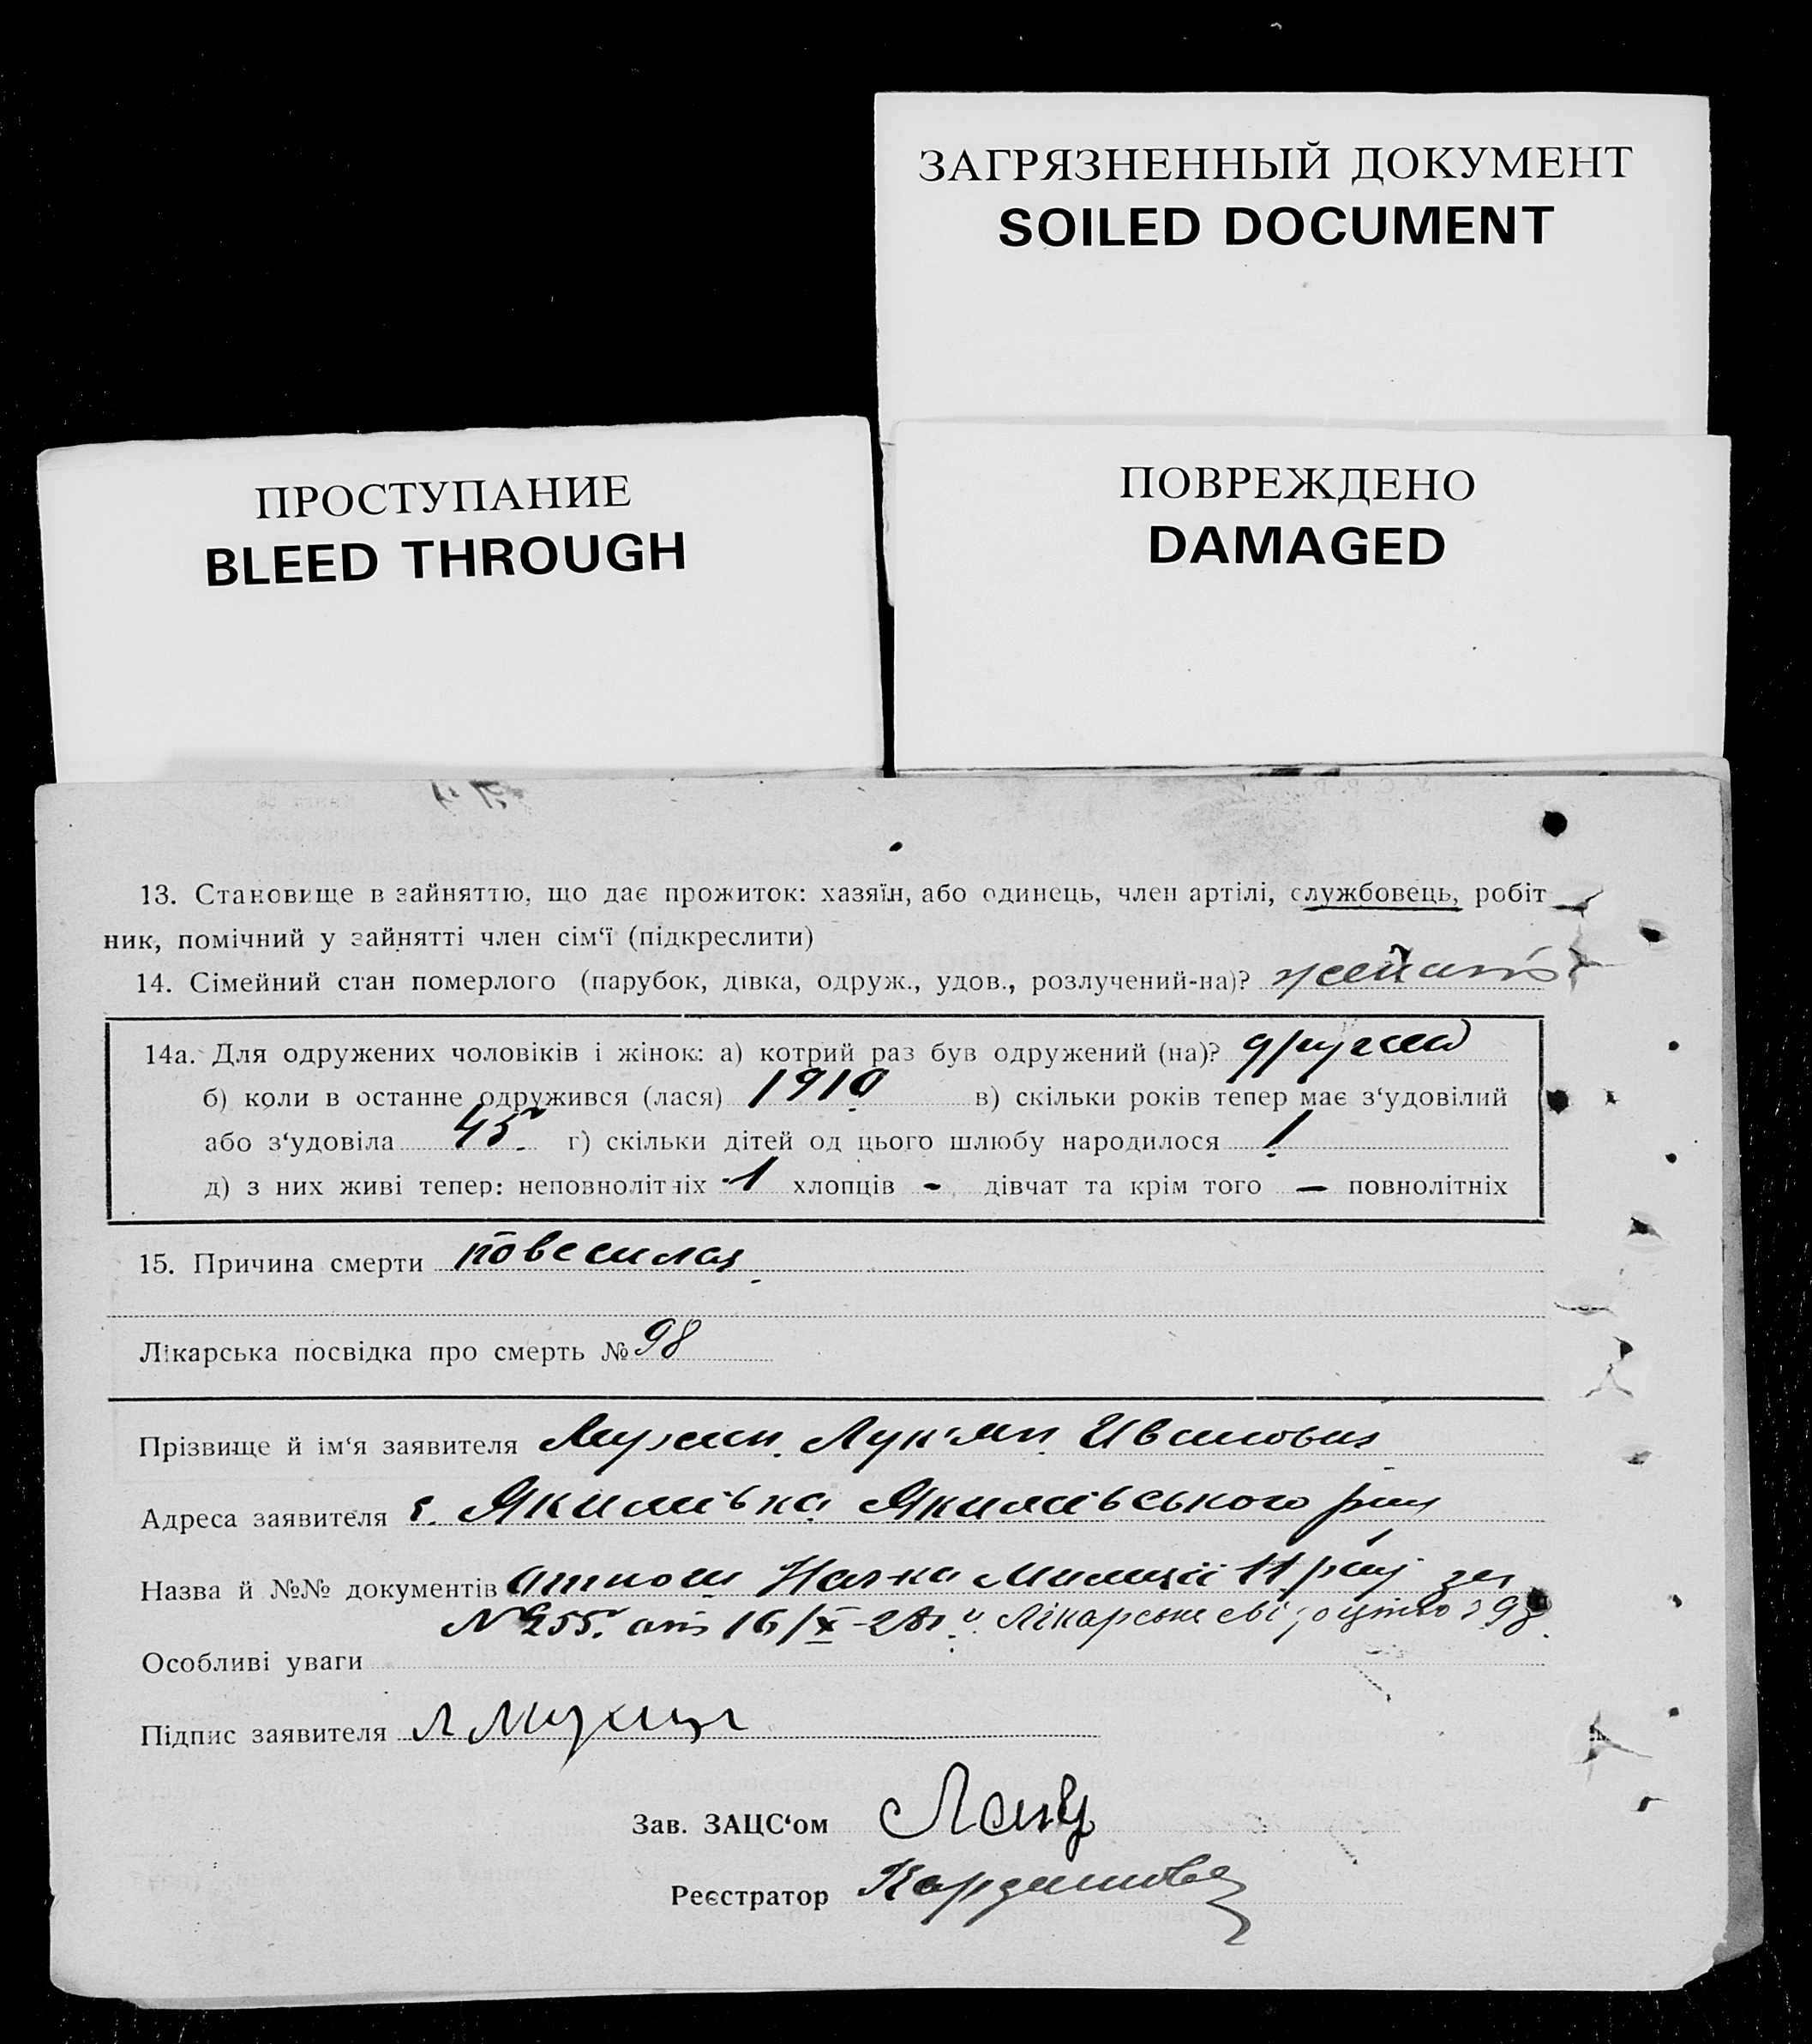 ЗАГРЯЗНЕННЫЙ ДОКУМЕНТ
SOILED DOCUMENT
ПРОСТУПАНИЕ
BLEED THROUGH
ПОВРЕЖДЕНО
DAMAGED
13. Становище в зайняттю, що дає прожиток: хазяїн, або одинець, член артілі, службовець, робіт
ник, помічний у зайнятті член сім‘ї (підкреслити)
14. Сімейний стан померлого (парубок, дівка, одруж., удов., розлучений-на)?
14а. Для одружених чоловіків і жінок: а) котрий раз був одружений (на)?
б) коли в останне одружився (лася) 1910 в) скільки років тепер має з‘удовілий
або з‘удовіла 45 г) скільки дітей од цього шлюбу народилося 1
д) з них живі тепер: неповнолітніх 1 хлопців - дівчат та крім того — повнолітніх
15. Причина смерти повесилася
Лікарська посвідка про смерть № 98
Прізвище й ім‘я заявителя Мухин Лук'ян Иванович
Адреса заявителя с. Якимівка Якимівського рай
Назва й №№ документів Нач-ка Милиції рай за
№ 255 от 16/X-28 и Лікарське 98
Особливі уваги
Підпис заявителя Л Мухин
Зав. ЗАЦС‘ом
Реєстратор